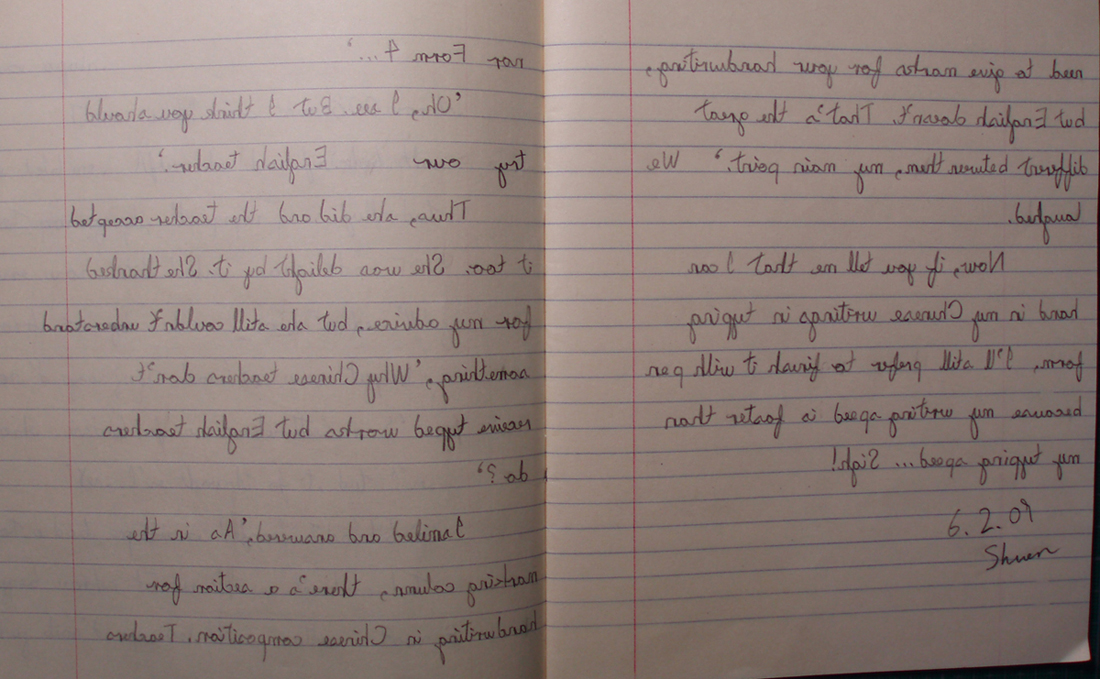 not Form 4...'
'Oh, I see. But I think you should
try our English teacher.'
Thus, she did and the teacher accepted
it too. She was delight by it. She thanked
for my advise, but she still couldn't understand
something, 'Why Chinese teachers don't
receive typed works but English teachers
do?'
I smiled and answered, 'As in the
marking column, there's a section for
handwriting in Chinese composition. Teachers
need to give marks for your handwriting,
but English doesn't. That's the great
different between them, my main point.' We
laughed.
Now, if you tell me that I can
hand in my Chinese writings in typing
form, I'll still prefer to finish it with pen
because my writing speed is faster than
my typing speed... Sigh!
6.2.09
Shuen